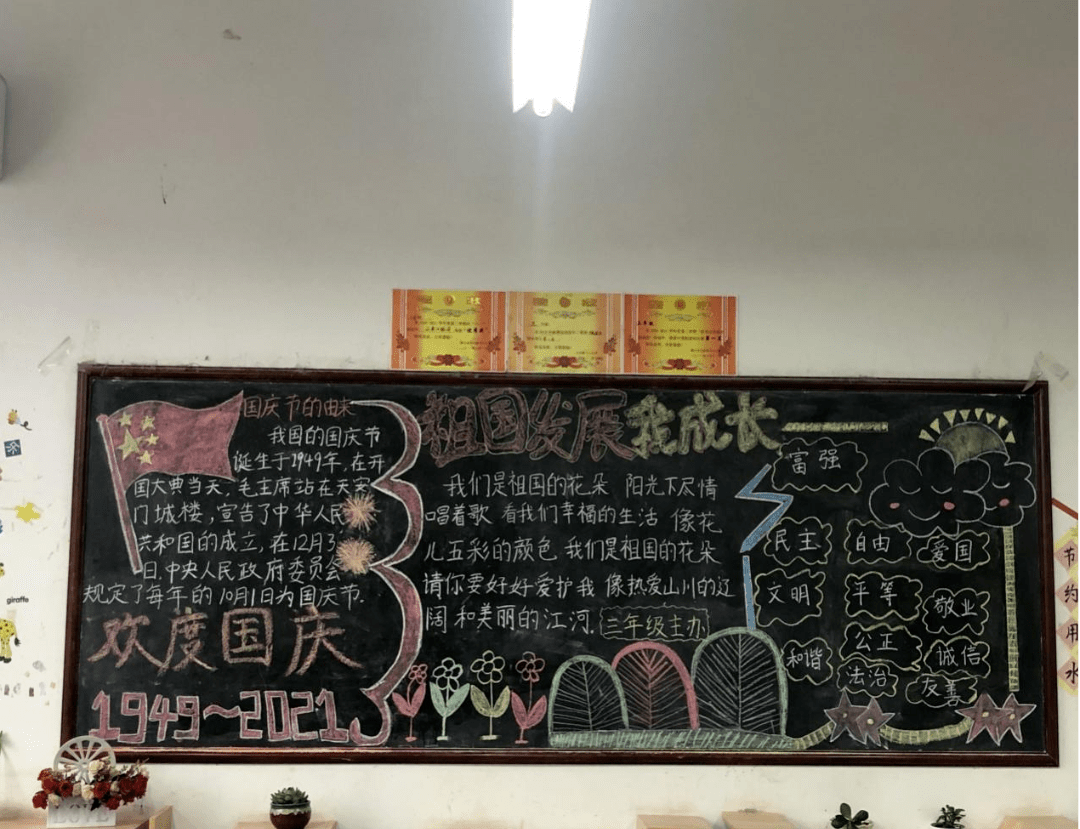 国庆节的由来
我国的国庆节
诞生于1949年,在开
国大典当天,毛主席站在天安
门城楼,宣告了中华人民
共和国的成立,在12月3
日.中央人民政府委员会
规定了每年的10月1日为国庆节.
欢度国庆
1949~2021
祖国发展我成长
我们是祖国的花朵 阳光下尽情
唱着歌 看我们幸福的生活 像花
儿五彩的颜色 我们是祖国的花朵
请你要好好爱护我 像热爱山川的辽
阔 和美丽的江河.
三年级主办
富强
民主
自由
爱国
文明
平等
敬业
和谐
公正
诚信
法治
友善
节
约
用
水
giraffe
LOVE